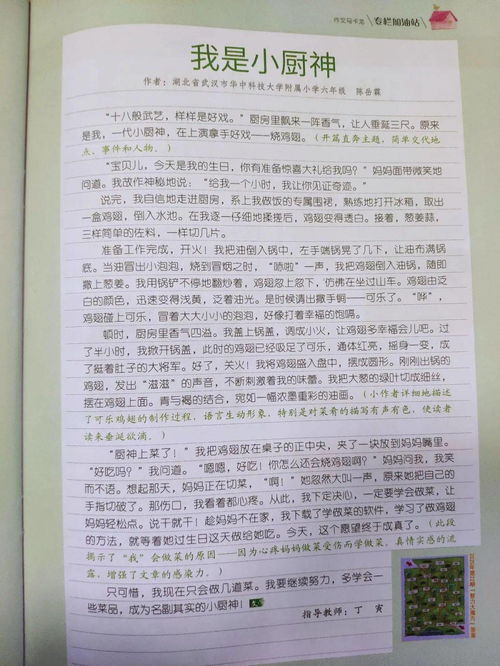 作文与卡龙 专栏加油站
我是小厨神
作者：湖北省武汉市华中科技大学附属小学六年级 陈岳霖
“十八般武艺，样样是好戏。”厨房里飘来一阵香气，让人垂涎三尺。原来
是我，一代小厨神，在上演拿手好戏——烧鸡翅。（开篇直奔主题，简单交代地
点、事件和人物。）
“宝贝儿，今天是我的生日，你有准备惊喜大礼给我吗？”妈妈面带微笑地
问道。我故作神秘地说：“给我一个小时，我让你见证奇迹。”
说完，我自信地走进厨房，系上我做饭的专属围裙，熟练地打开冰箱，取出
一盒鸡翅，倒入水池。在我逐一仔细地揉搓后，鸡翅变得透白。接着，葱姜蒜，
三样简单的佐料，一样切几片。
准备工作完成，开火！我把油倒入锅中，左手端锅晃了几下，让油布满锅
底。当油冒出小泡泡，烧到冒烟之时，“哧啦”一声，我把鸡翅倒入油锅，随即
撒上葱姜。我用锅铲不停地翻炒着，鸡翅忽上忽下，仿佛在坐过山车。鸡翅由泛
白的颜色，迅速变得浅黄，泛着油光。是时候请出撒手锏——可乐了。“哗”，
鸡翅碰上可乐，冒着大大小小的泡泡，好像打着幸福的饱嗝。
顿时，厨房里香气四溢。我盖上锅盖，调成小火，让鸡翅多幸福会儿吧。过
了半小时，我掀开锅盖，此时的鸡翅已经吸足了可乐，通体红亮，摇身一变，成
了挺着肚子的大将军。好了，关火！我将鸡翅盛入盘中，摆成圆形。刚刚出锅的
鸡翅，发出“滋滋”的声音，不断刺激着我的味蕾。我把大葱的绿叶切成细丝，
摆在鸡翅上面。青与褐的结合，宛如一幅浓墨重彩的油画。（小作者详细地描述
了可乐鸡翅的制作过程，语言生动形象，特别是对菜肴的描写有声有色，使读者
读来垂涎欲滴。）
“厨神上菜了！”我把鸡翅放在桌子的正中央，夹了一块放到妈妈嘴里。
“好吃吗？”我问道。“嗯嗯，好吃！你怎么还会烧鸡翅啊？”妈妈问我，我笑
而不语。想起那天，妈妈正在切菜，“啊！”她忽然大叫一声，原来她把自己的
手指切破了。那伤口，我看着都心疼。从此，我下定决心，一定要学会做菜，让
妈妈轻松点。说干就干！趁妈妈不在家，我下载了学做菜的软件，学习了做鸡翅
的方法，就等着她过生日这天做给她吃。今天，这个愿望终于成真了。（此段
揭示了“我”会做菜的原因——因为心疼妈妈做菜受伤而学做菜，真情实感的流
露，增强了文章的感染力。）
只可惜，我现在只会做几道菜。我要继续努力，多学会一
些菜品，成为名副其实的小厨神！
指导教师：丁 寅